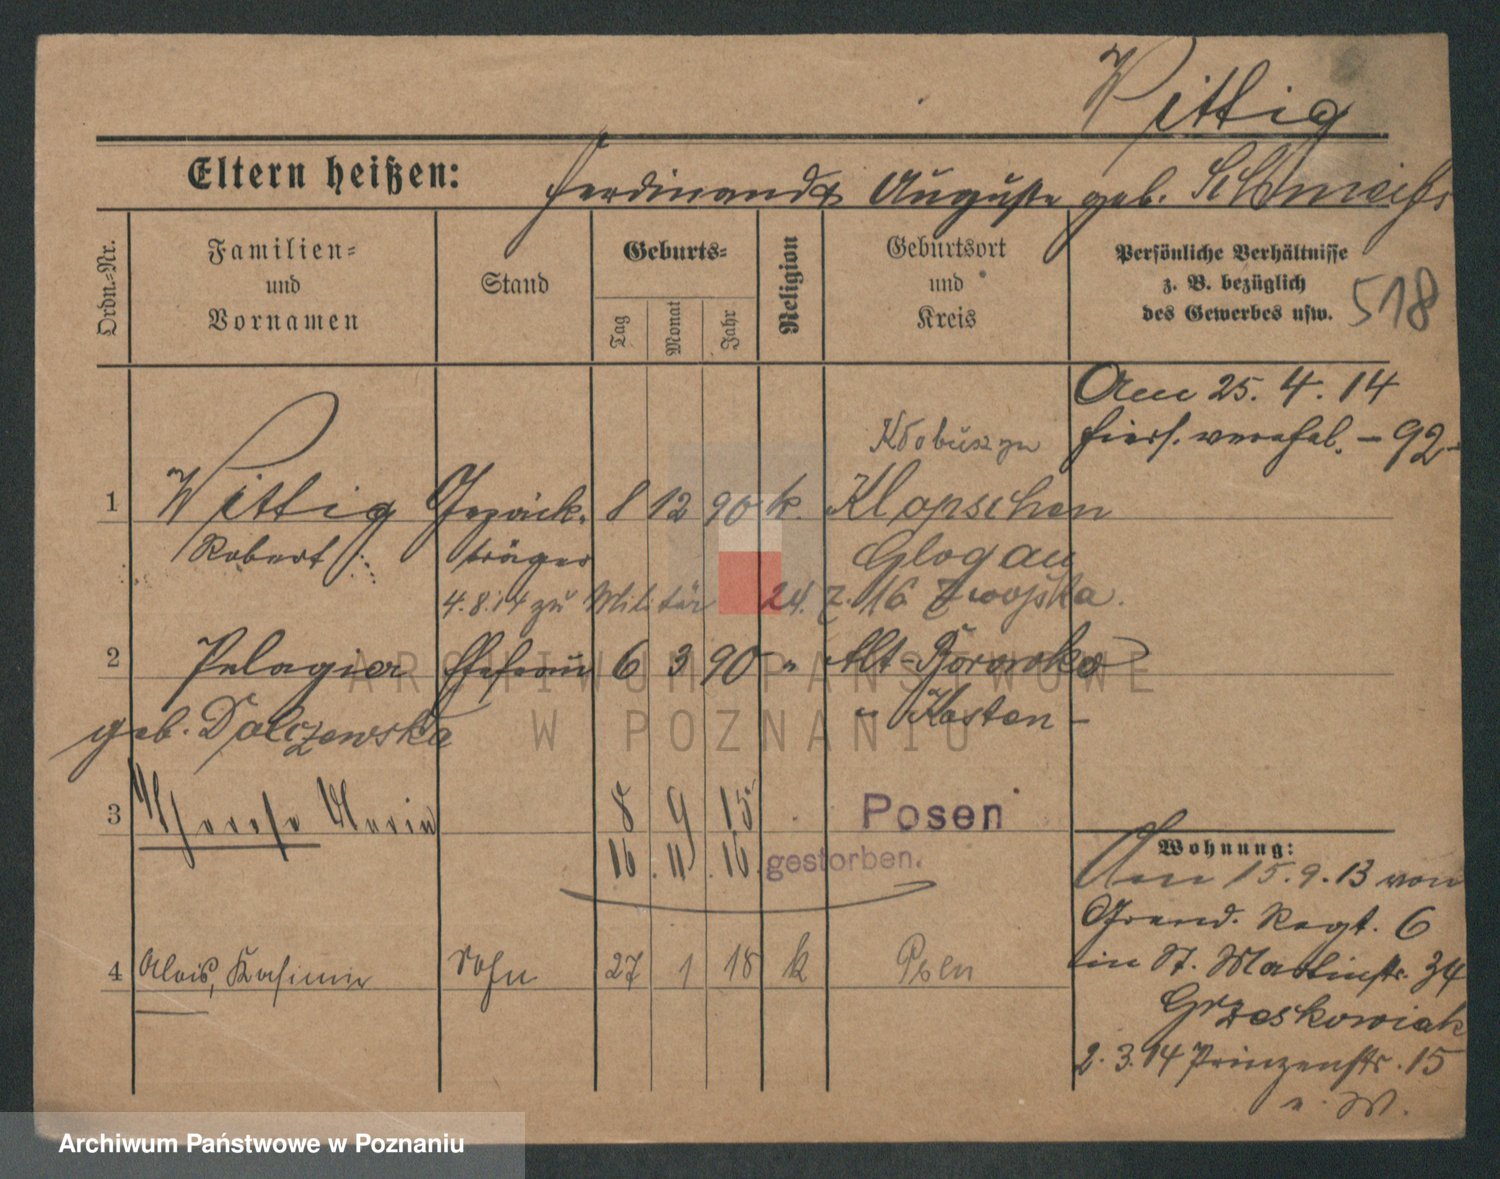 Wittig
Eltern heißen: Ferdinand & Auguste geb. Schmeiß
Ordn.-Nr.
Familien-
und
Vornamen
Stand
Geburts-
Tag
Monat
Jahr
Religion
Geburtsort
und
Kreis
Persönliche Verhältnisse
z. B. bezüglich
des Gewerbes usw.
518
Am 25. 4. 14
hiers. verehel. - 92 -
1 Wittig Gepäck- 8 12 90 k. Klopschen
Robert träger Glogau
4.8.14 zu Militär 24. 7. 16 Z wojska.
2 Pelagia Ehefrau 6 3 90 " Alt-Borowko
geb. Dolczewska " Kosten -
3 Maria 8 9 15 Posen
16. 11. 16. gestorben.
4 Alois, Kasimir Sohn 27 1 18 k Posen
Wohnung:
Am 15. 9. 13 von
Grend. Regt. 6
in St. Martinstr. 34
Grzeskowiak
2. 3. 14 Prinzenstr. 15
ARCHIWUM PAŃSTWOWE
W POZNANIU
Archiwum Państwowe w Poznaniu